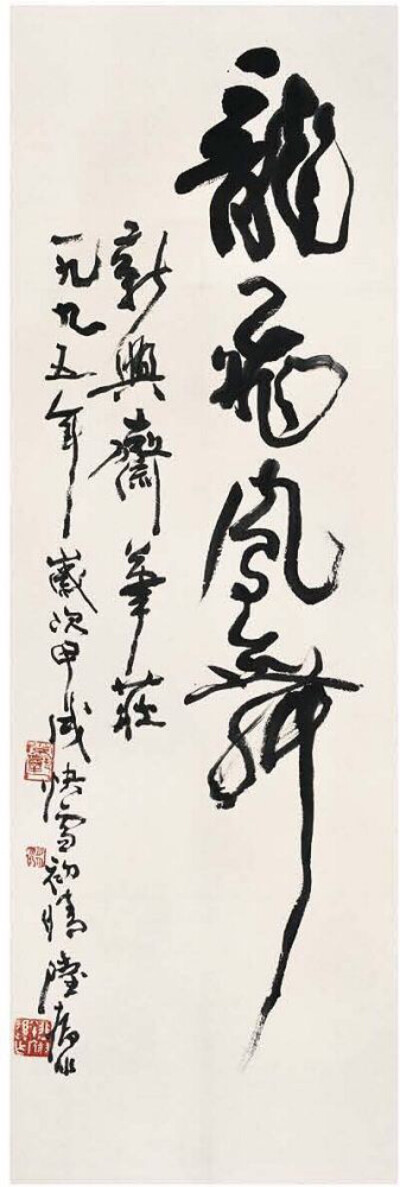 龍飛鳳舞
新興齋筆莊
一九九五年歲次甲戌快雪初晴